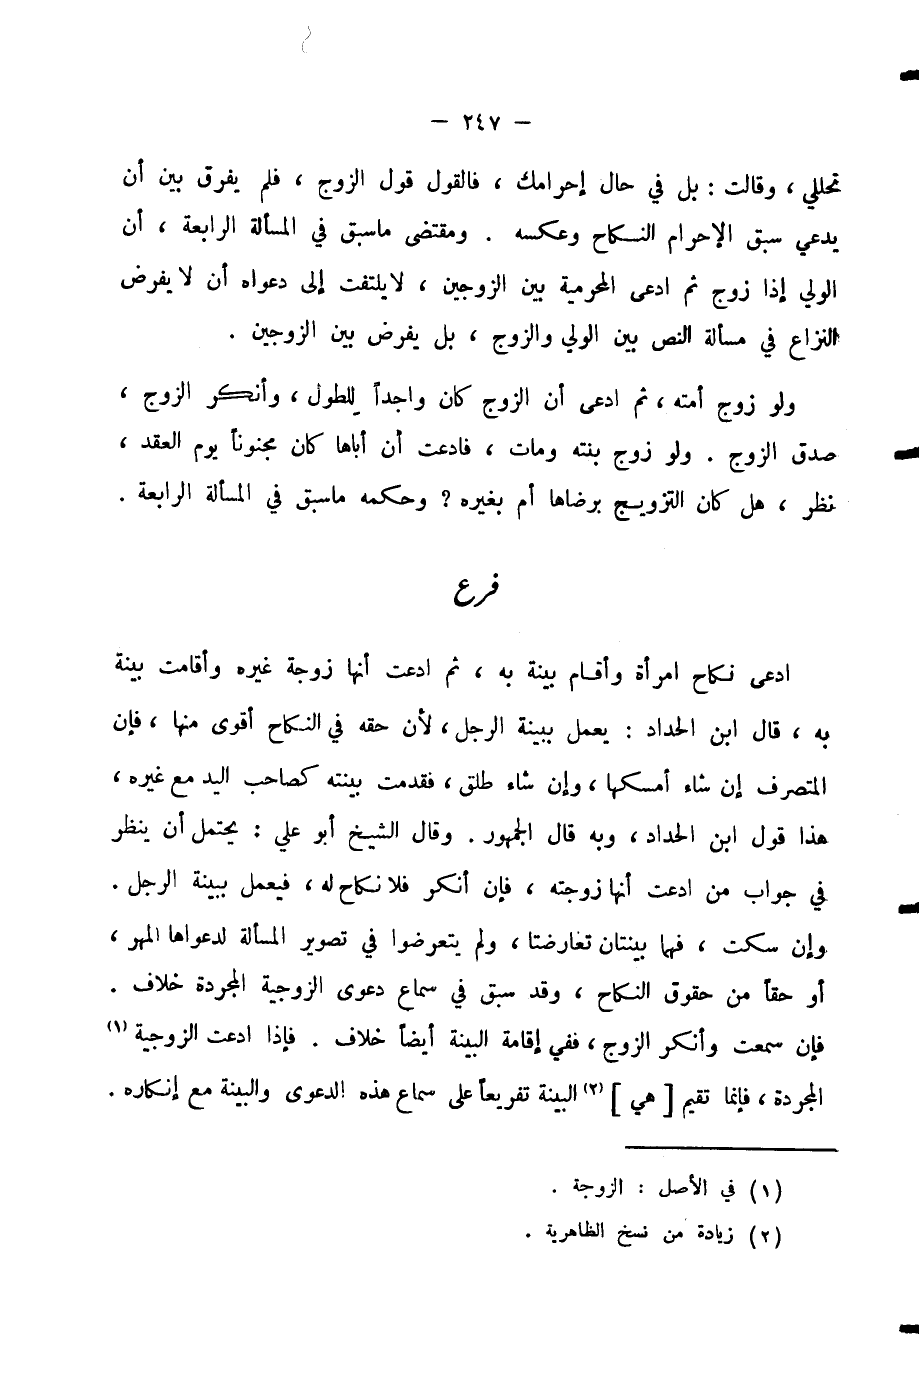 — ٢٤٧ —
تحللي ، وقالت : بل في حال إحرامك ، فالقول قول الزوج ، فلم يفرق بين أن
يدعي سبق الإحرام النكاح وعكسه . ومقتضى ماسبق في المسألة الرابعة ، أن
الولي إذا زوج ثم ادعى المحرمية بين الزوجين ، لايلتفت إلى دعواه أن لا يفرض
النزاع في مسألة النص بين الولي والزوج ، بل يفرض بين الزوجين .
ولو زوج أمته ، ثم ادعى أن الزوج كان واجداً للطول ، وأنكر الزوج ،
صدق الزوج . ولو زوج بنته ومات ، فادعت أن أباها كان مجنوناً يوم العقد ،
نظر ، هل كان التزويج برضاها أم بغيره ؟ وحكمه ماسبق في المسألة الرابعة .
فرع
ادعى نكاح امرأة وأقام بينة به ، ثم ادعت أنها زوجة غيره وأقامت بينة
به ، قال ابن الحداد : يعمل ببينة الرجل ، لأن حقه في النكاح أقوى منها ، فإن
المتصرف إن شاء أمسكها ، وإن شاء طلق ، فقدمت بينته كصاحب اليد مع غيره ،
هذا قول ابن الحداد ، وبه قال الجمهور . وقال الشيخ أبو علي : يحتمل أن ينظر
في جواب من ادعت أنها زوجته ، فإن أنكر فلا نكاح له ، فيعمل ببينة الرجل .
وإن سكت ، فهما بينتان تعارضتا ، ولم يتعرضوا في تصوير المسألة لدعواها المهر ،
أو حقاً من حقوق النكاح ، وقد سبق في سماع دعوى الزوجية المجردة خلاف .
فإن سمعت وأنكر الزوج ، ففي إقامة البينة أيضاً خلاف . فإذا ادعت الزوجية (١)
المجردة ، فإنما تقيم [ هي ] (٢) البينة تفريعاً على سماع هذه الدعوى والبينة مع إنكاره .
(١) في الأصل : الزوجة .
(٢) زيادة من نسخ الظاهرية .